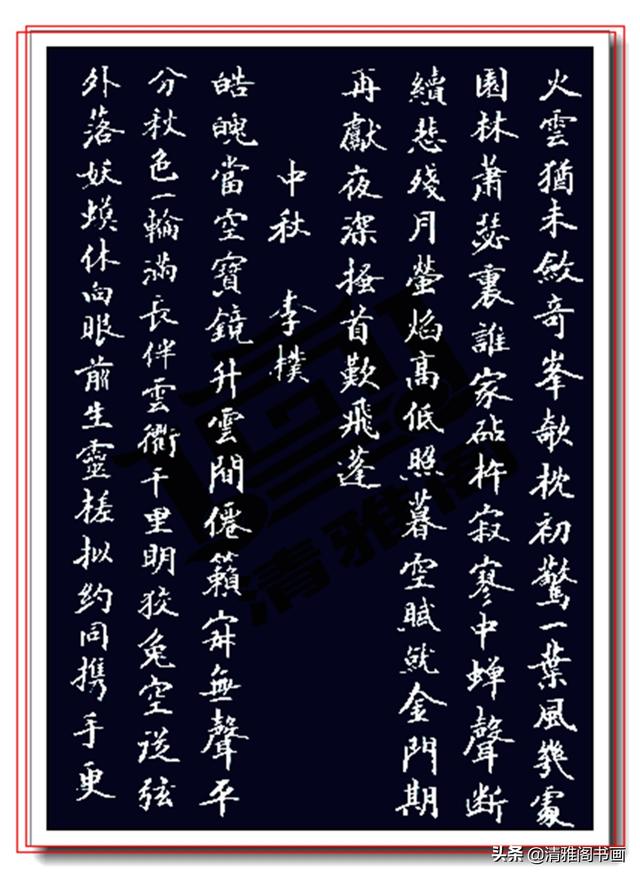 火雲猶未斂奇峯欹枕初驚一葉風幾處
園林蕭瑟裏誰家砧杵寂寥中蟬聲斷
續悲殘月螢焰高低照暮空賦就金門期
再獻夜深搔首歎飛蓬
中秋 李樸
皓魄當空寶鏡升雲間僊籟寂無聲平
分秋色一輪滿長伴雲衢千里明狡兔空從弦
外落妖蟆休向眼前生靈槎拟約同携手更
清雅阁
头条@清雅阁书画